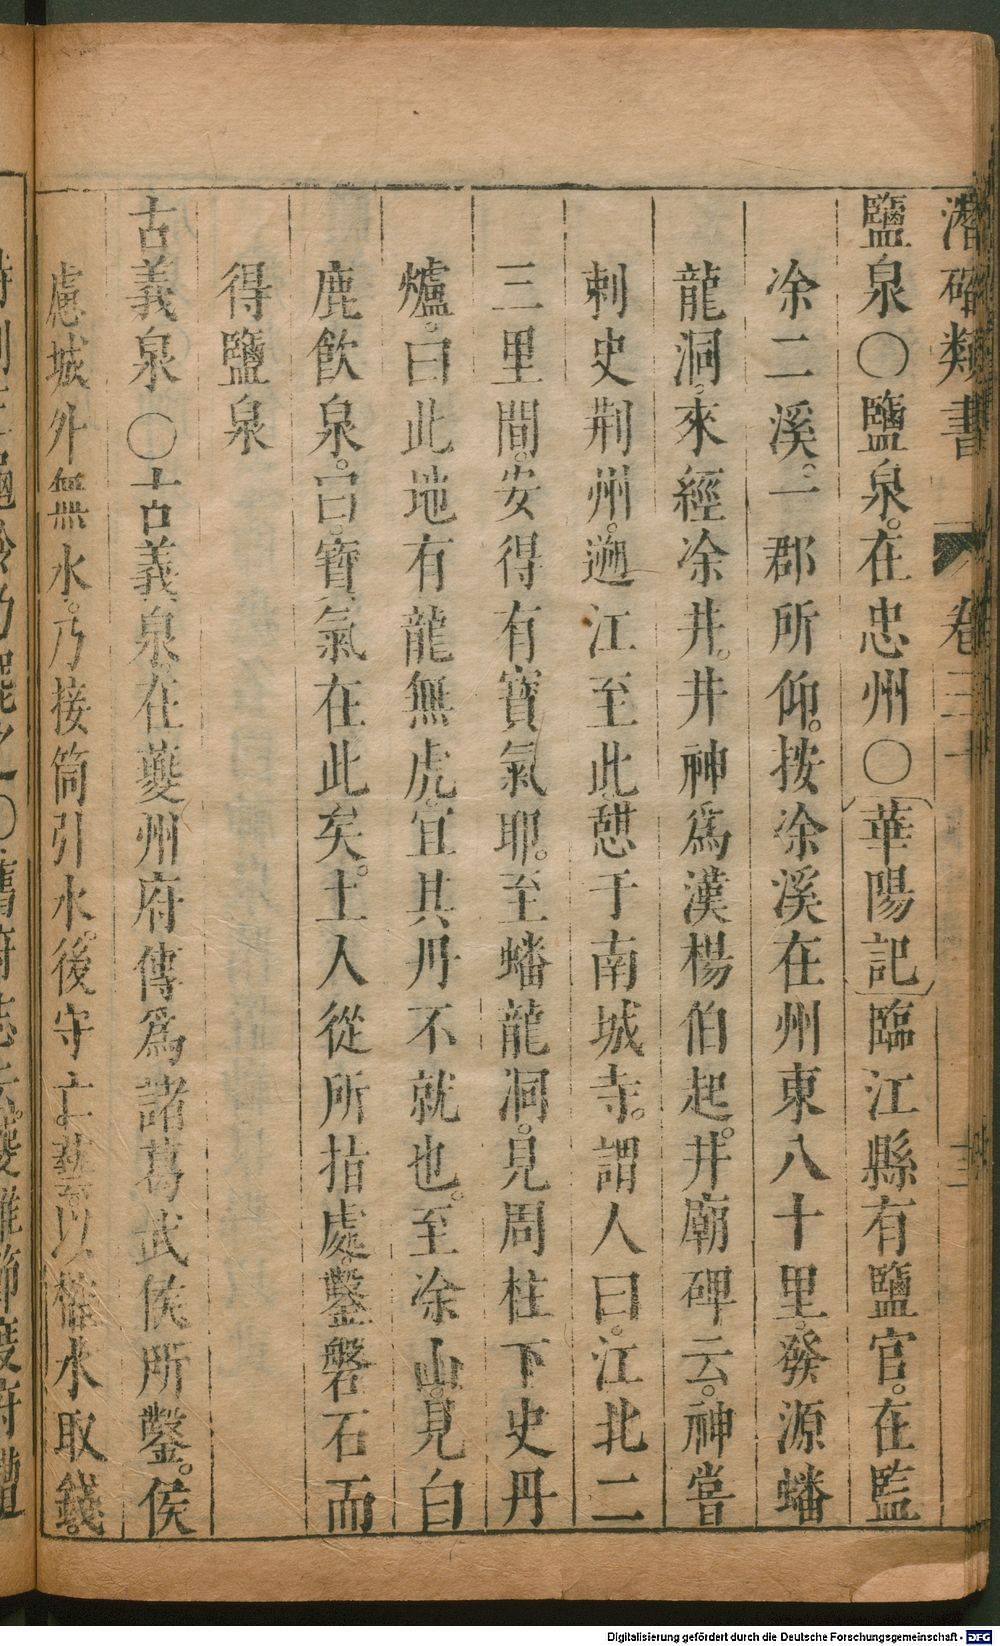 潛確類書 卷三十
鹽泉〇鹽泉。在忠州〇華陽記臨江縣有鹽官。在監
凃二溪。一郡所仰。按凃溪在州東八十里。發源蟠
龍洞。來經凃井。井神爲漢楊伯起。井廟碑云。神嘗
刺史荆州。遡江至此。憇于南城寺。謂人曰。江北二
三里間。安得有寶氣耶。至蟠龍洞。見周柱下史丹
爐。曰此地有龍無虎。宜其丹不就也。至凃山。見白
鹿飲泉。曰。寶氣在此矣。土人從所指處。鑿磐石而
得鹽泉
古義泉〇古義泉在夔州府傳爲諸葛武侯所鑿。侯
慮城外無水。乃接筒引水。後守亡藝以榷水取錢。
Digitalisierung gefördert durch die Deutsche Forschungsgemeinschaft - DFG